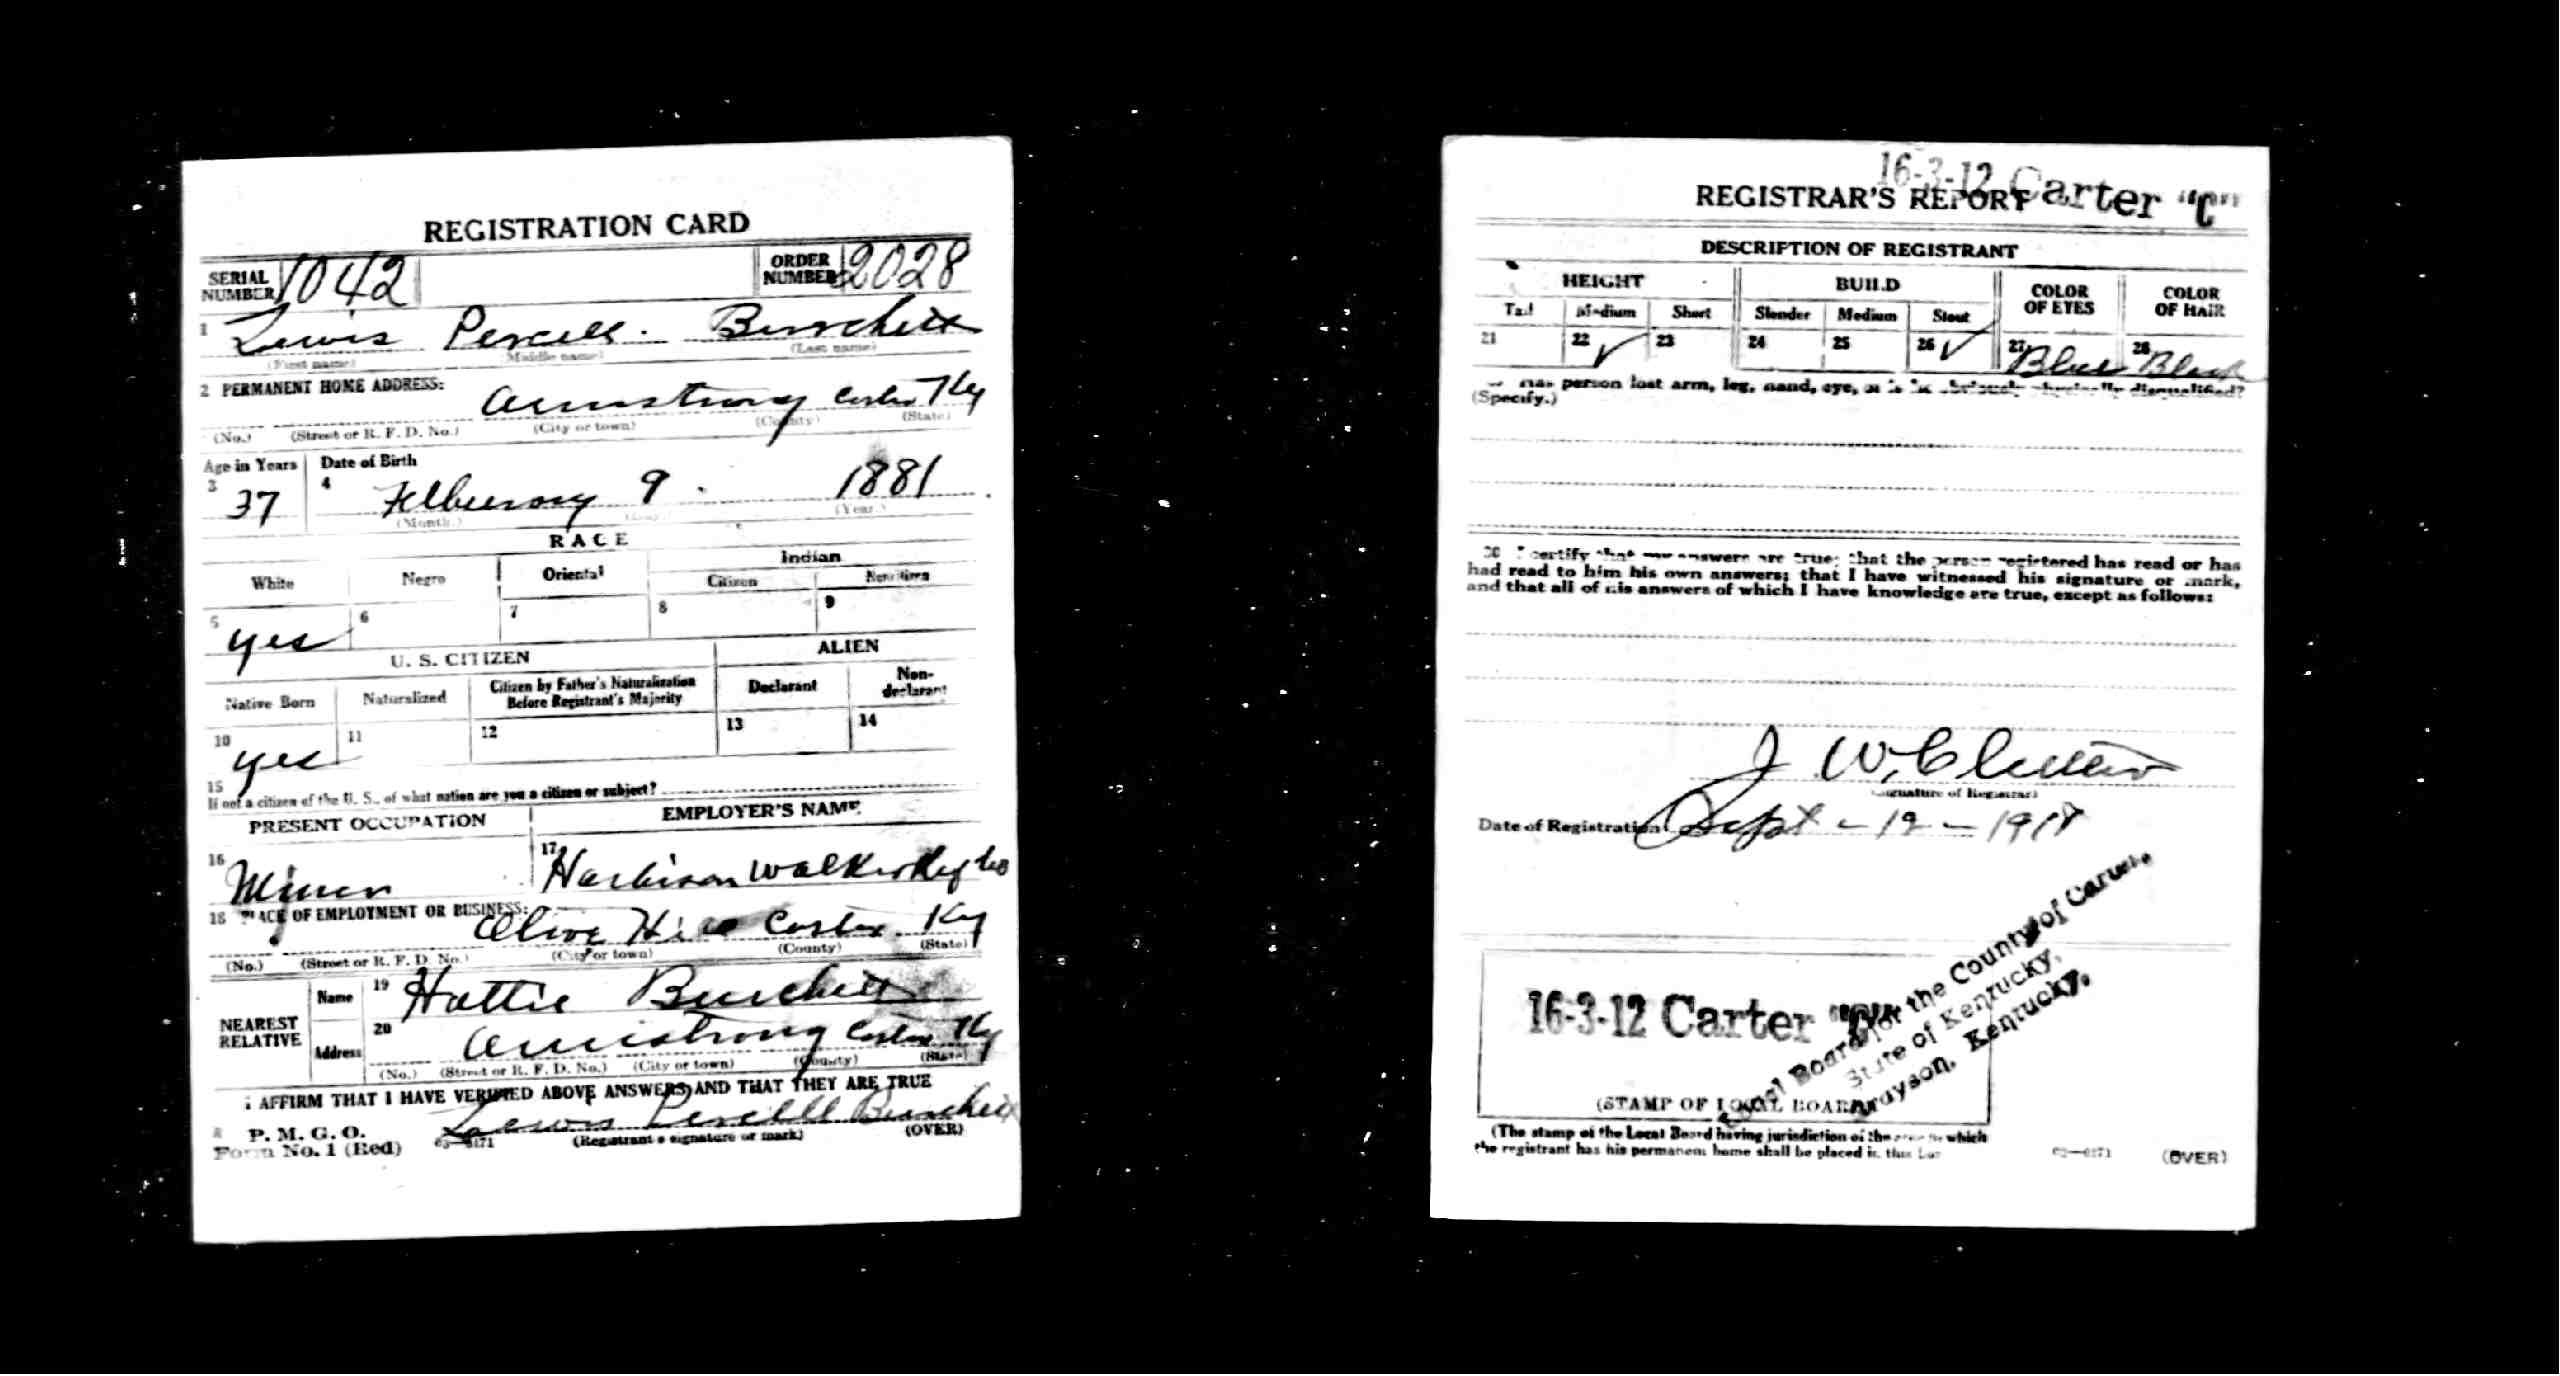 REGISTRATION CARD
SERIAL NUMBER 1042 ORDER NUMBER 2028
1 Lewis Percell Burchett
(First name) (Middle name) (Last name)
2 PERMANENT HOME ADDRESS:
Armstrong Carter Ky
(No.) (Street or R. F. D. No.) (City or town) (County) (State)
Age in Years Date of Birth
3 37 4 February 9 1881
(Month.) (Day.) (Year.)
RACE
White Negro Oriental Indian
Citizen Noncitizen
5 yes 6 7 8 9
U. S. CITIZEN ALIEN
Native Born Naturalized Citizen by Father's Naturalization Before Registrant's Majority Declarant Non-declarant
10 yes 11 12 13 14
15
If not a citizen of the U. S., of what nation are you a citizen or subject?
PRESENT OCCUPATION EMPLOYER'S NAME
16 Miner 17 Harbison Walker Ref Co
18 PLACE OF EMPLOYMENT OR BUSINESS:
Olive Hill Carter Ky
(No.) (Street or R. F. D. No.) (City or town) (County) (State)
NEAREST RELATIVE
Name 19 Hattie Burchett
Address 20 Armstrong Carter Ky
(No.) (Street or R. F. D. No.) (City or town) (County) (State)
I AFFIRM THAT I HAVE VERIFIED ABOVE ANSWERS AND THAT THEY ARE TRUE
Lewis Percell Burchett
P. M. G. O.
Form No. 1 (Red) 03—6171 (Registrant's signature or mark) (OVER)
16-3-12 Carter "C"
REGISTRAR'S REPORT
DESCRIPTION OF REGISTRANT
HEIGHT BUILD COLOR OF EYES COLOR OF HAIR
Tall Medium Short Slender Medium Stout
21 22 ✓ 23 24 25 26 ✓ 27 Blue 28 Black
Has person lost arm, leg, hand, eye, or is he obviously physically disqualified?
(Specify.)
30 I certify that my answers are true; that the person registered has read or has
had read to him his own answers; that I have witnessed his signature or mark,
and that all of his answers of which I have knowledge are true, except as follows:
J. W.
(Signature of Registrar)
Date of Registration Sept - 12 - 1918
Local Board for the County of Carter,
State of Kentucky,
Grayson, Kentucky.
16-3-12 Carter "C"
(STAMP OF LOCAL BOARD)
(The stamp of the Local Board having jurisdiction of the area in which
the registrant has his permanent home shall be placed in this box.)
03—6171 (OVER)